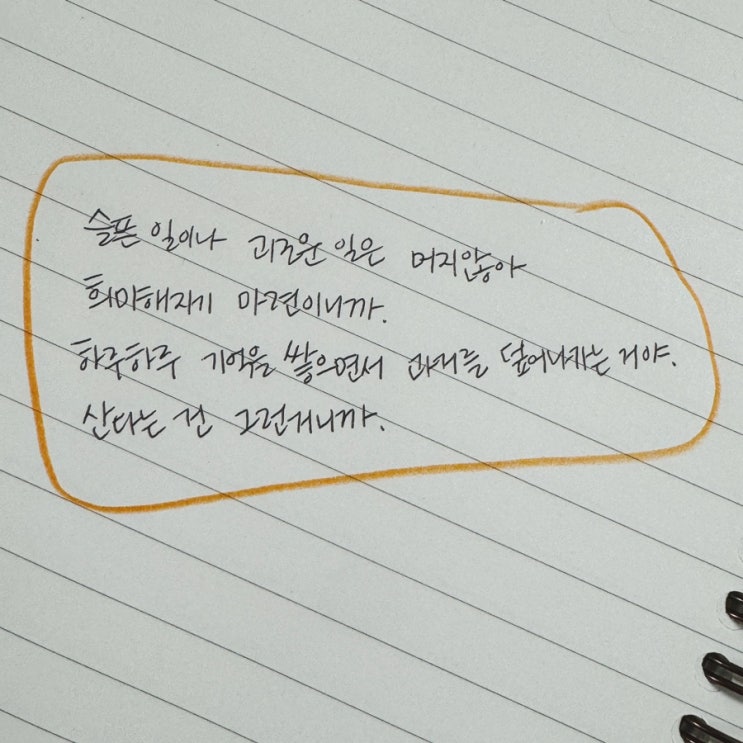 슬픈 일이나 괴로운 일은 머지않아
희미해지기 마련이니까.
하루하루 기억을 쌓으면서 과거를 덮어나가는 거야.
산다는 건 그런거니까.